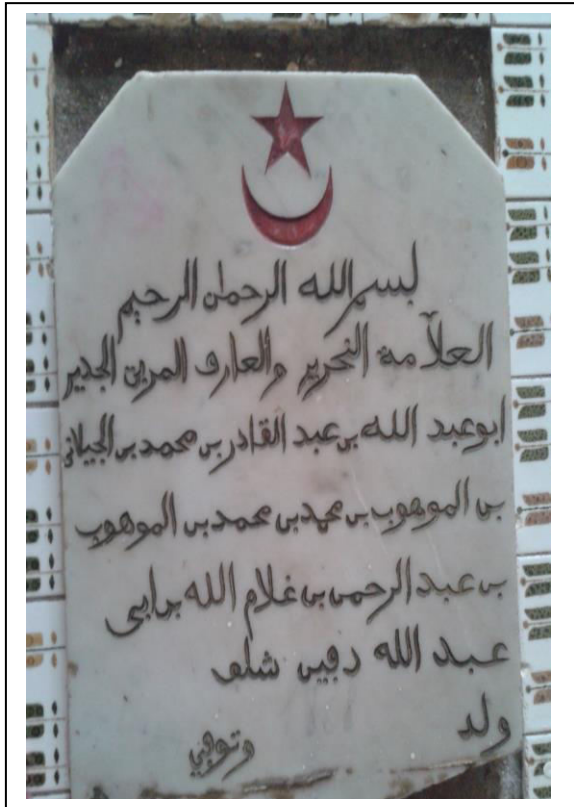 بسم الله الرحمان الرحيم
العلاّمة النحرير والعارف المربي الجدير
ابو عبد الله بن عبد القادر بن محمد بن الجيلاني
بن الموهوب بن محمد بن محمد بن الموهوب
بن عبد الرحمن بن غلام الله بن ابي
عبد الله دفين شلف
ولد وتوفي